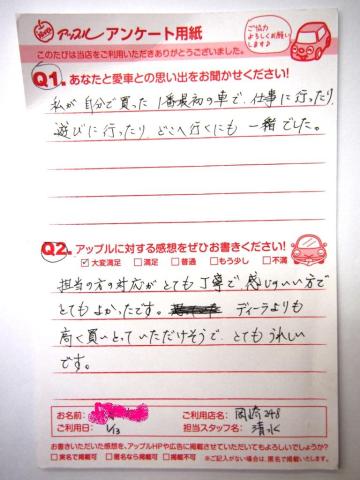 アップル アンケート用紙
ご協力
よろしくお願い
します♪
このたびは当店をご利用いただきありがとうございました。
Q1. あなたと愛車との思い出をお聞かせください!
私が自分で買った1番最初の車で、仕事に行ったり、
遊びに行ったり、どこへ行くにも一緒でした。
Q2. アップルに対する感想をぜひお書きください!
☑大変満足 □満足 □普通 □もう少し □不満
担当の方の対応がとても丁寧で、感じのいい方で
とてもよかったです。 ディーラよりも
高く買いとっていただけそうで、とてもうれしい
です。
お名前: ご利用店名: 岡崎248
ご利用日: 1/13 担当スタッフ名: 清水
お書きいただいた感想を、アップルHPや広告に掲載させていただいてもよろしいでしょうか?
□実名で掲載可 □匿名なら掲載可 □掲載不可 ※ご記入がない場合は、匿名で掲載いたします。